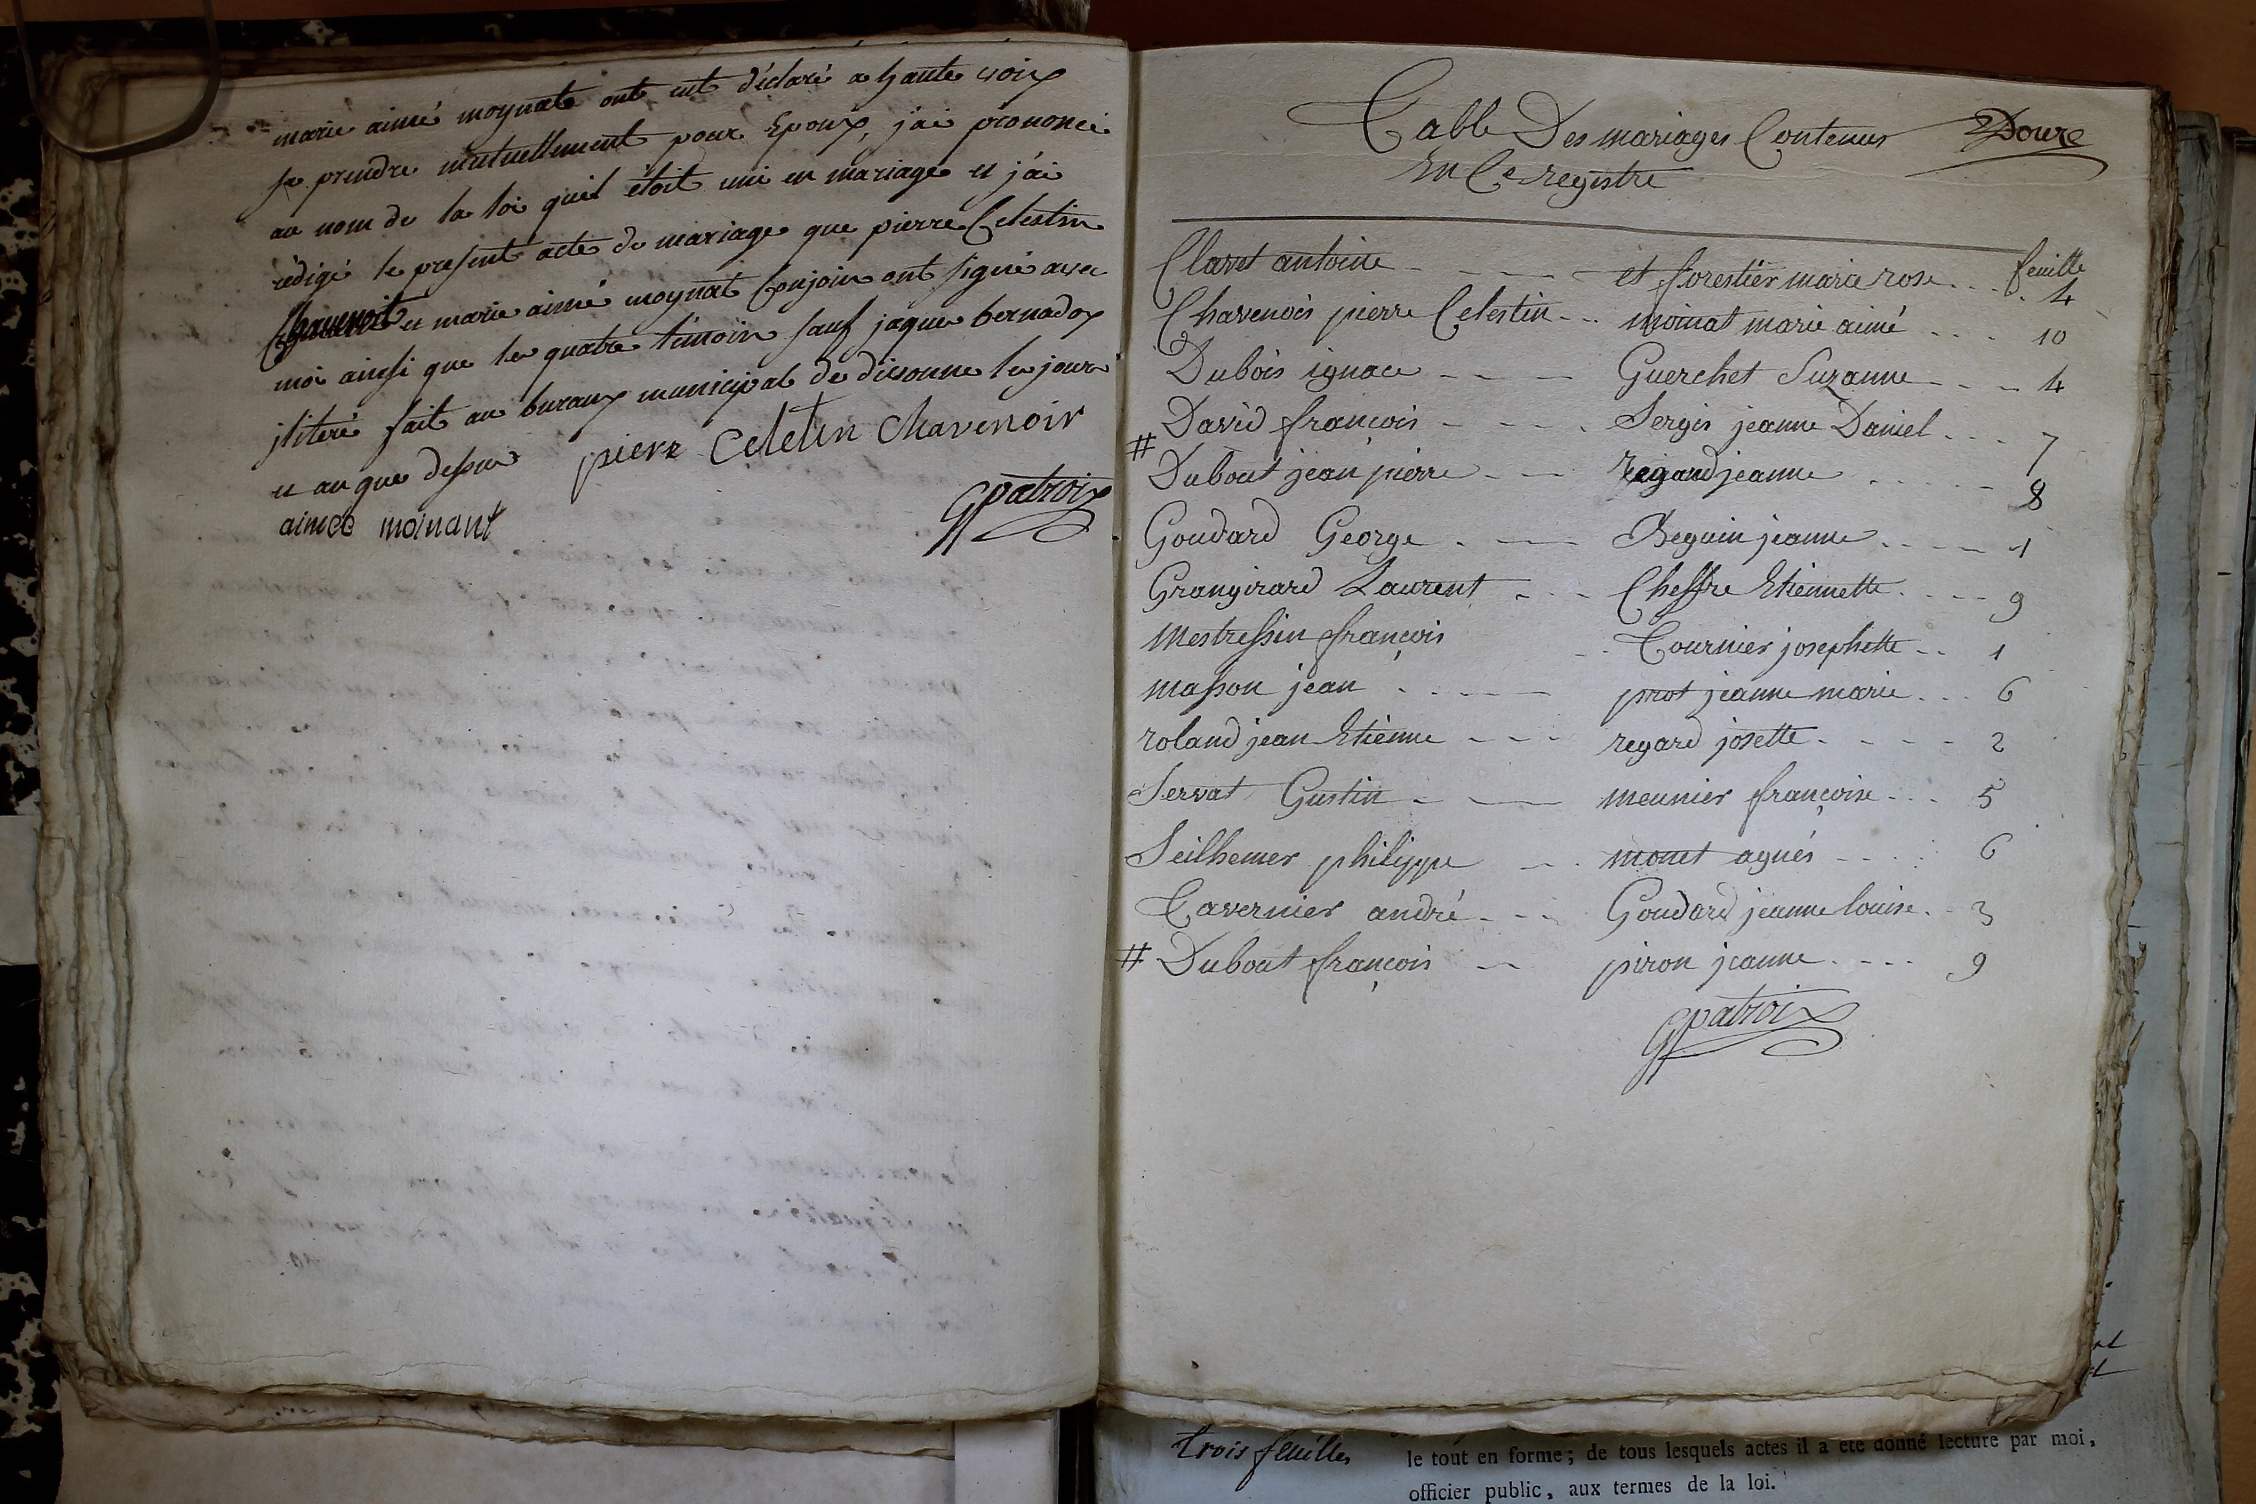 marie aimé moynat ont eut déclaré a haute voix
se prendre mutuellement pour Epoux, j'ai prononcé
au nom de la loi quil étoit uni en mariage et j'ai
rédigé le present acte de mariage que pierre Celestin
Chavenoit et marie aimé moynat Conjoin ont signé avec
moi ainsi que les quatre témoin sauf jaque bernadox
jlitéré fait au buraux municipal de dissonne les jour
et an que dessus pierz Celetin Chavenoir
aimee moinant Gpatroix
Table Des mariages Contenus Doure
En Ce registre
feuille
Clavet antoine et forestier marie rose 4
Chavenois pierre Celestin moinat marie aimé 10
Dubois ignace Guerchet Suzanne 4
David françois Sergis jeanne Daniel 7
# Dubout jean pierre regard jeanne 8
Goudard George Beguin jeanne 1
Grangirard Laurent Cheffre Etiennette 9
Mestressin françois Tournier josephette 1
masson jean prot jeanne marie 6
roland jean Etienne regard josette 2
Servat Gustin meunier françoise 5
Seilhemer philippe monet agnés 6
Tavernier andré Goudard jeanne louise 3
# Dubout françois piron jeanne 9
Gpatroix
trois feuilles
le tout en forme ; de tous lesquels actes il a été donné lecture par moi,
officier public, aux termes de la loi.